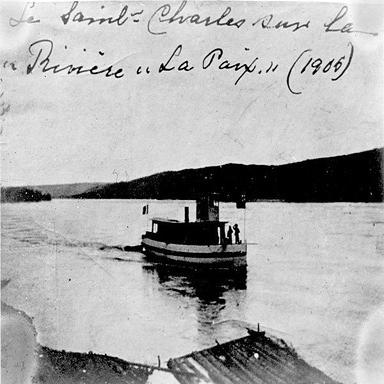 Le Saint-Charles sur la
"Rivière "La Paix." (1906)